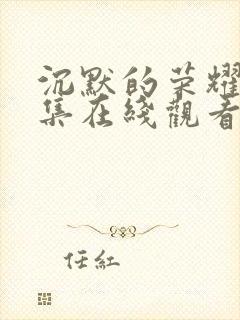 沉默的荣耀
集在线觀看
任红